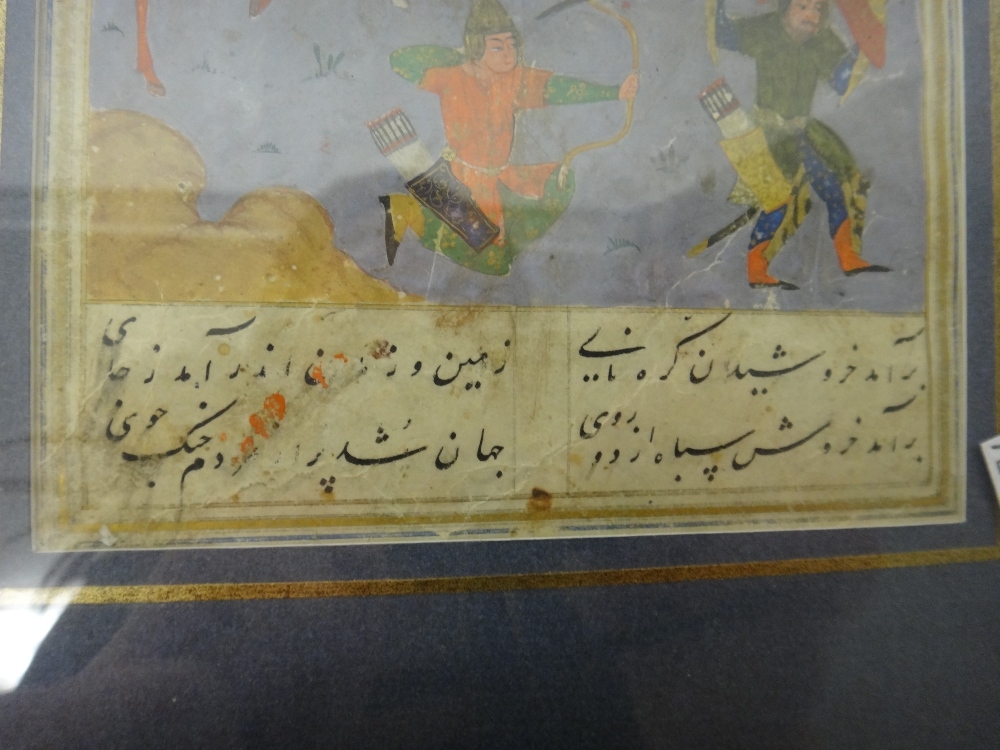 برآمد خروشیدن کره نایے زمین و اندر آمد ز جای
برآمد خروش سپاه از دو روی جهان شد پر مردم جنگ جوی